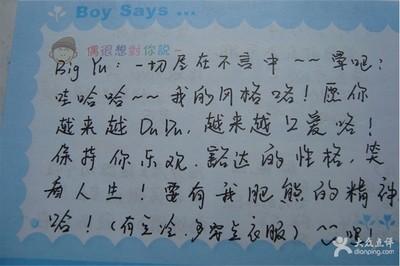 Boy Says ...
偶很想對你說~
Big Yu：一切尽在不言中~~晕吧：
哇哈哈~~我的风格咯！愿你
越来越DuDu，越来越口爱咯！
保持你乐观、豁达的性格，笑
看人生！要有我肥熊的精神
哈！（有点冷，多穿点衣服）~~嘿！
大众点评
dianping.com